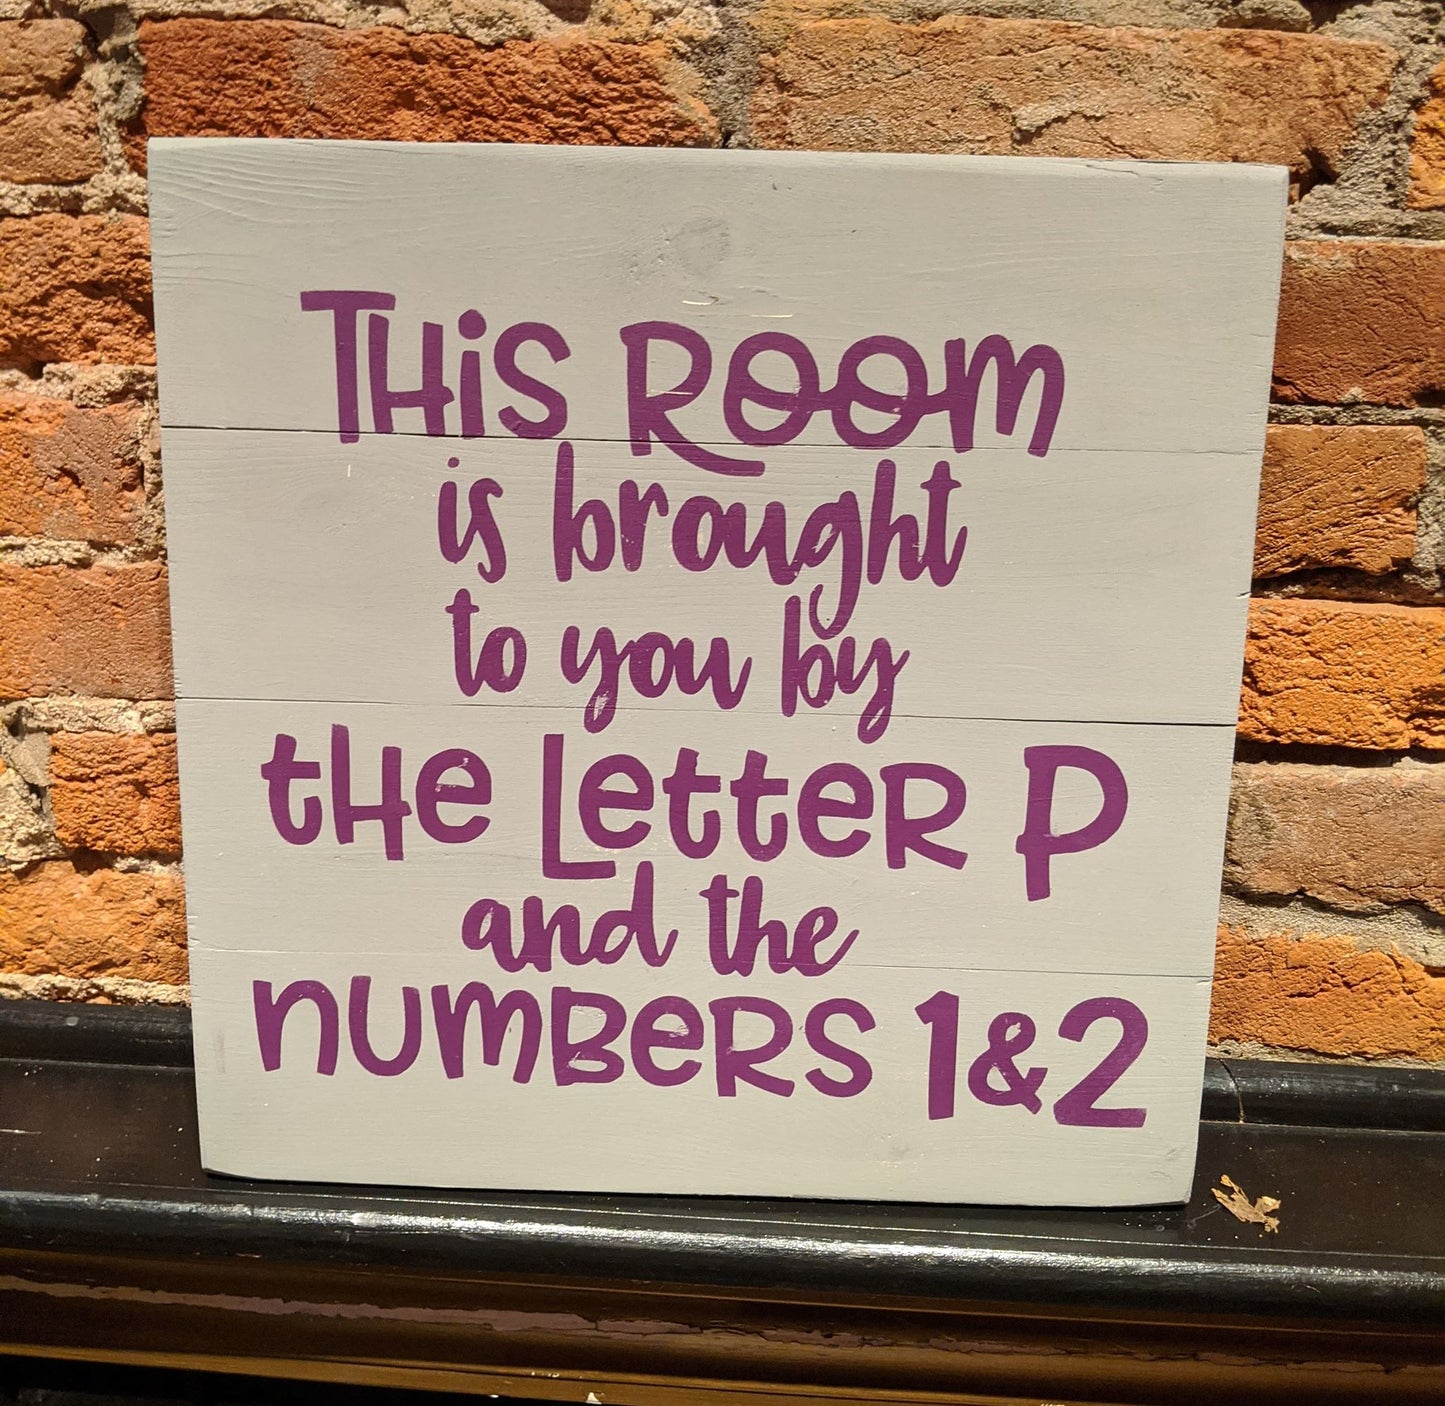 THIS ROOM
is brought
to you by
the Letter P
and the
numbers 1&2